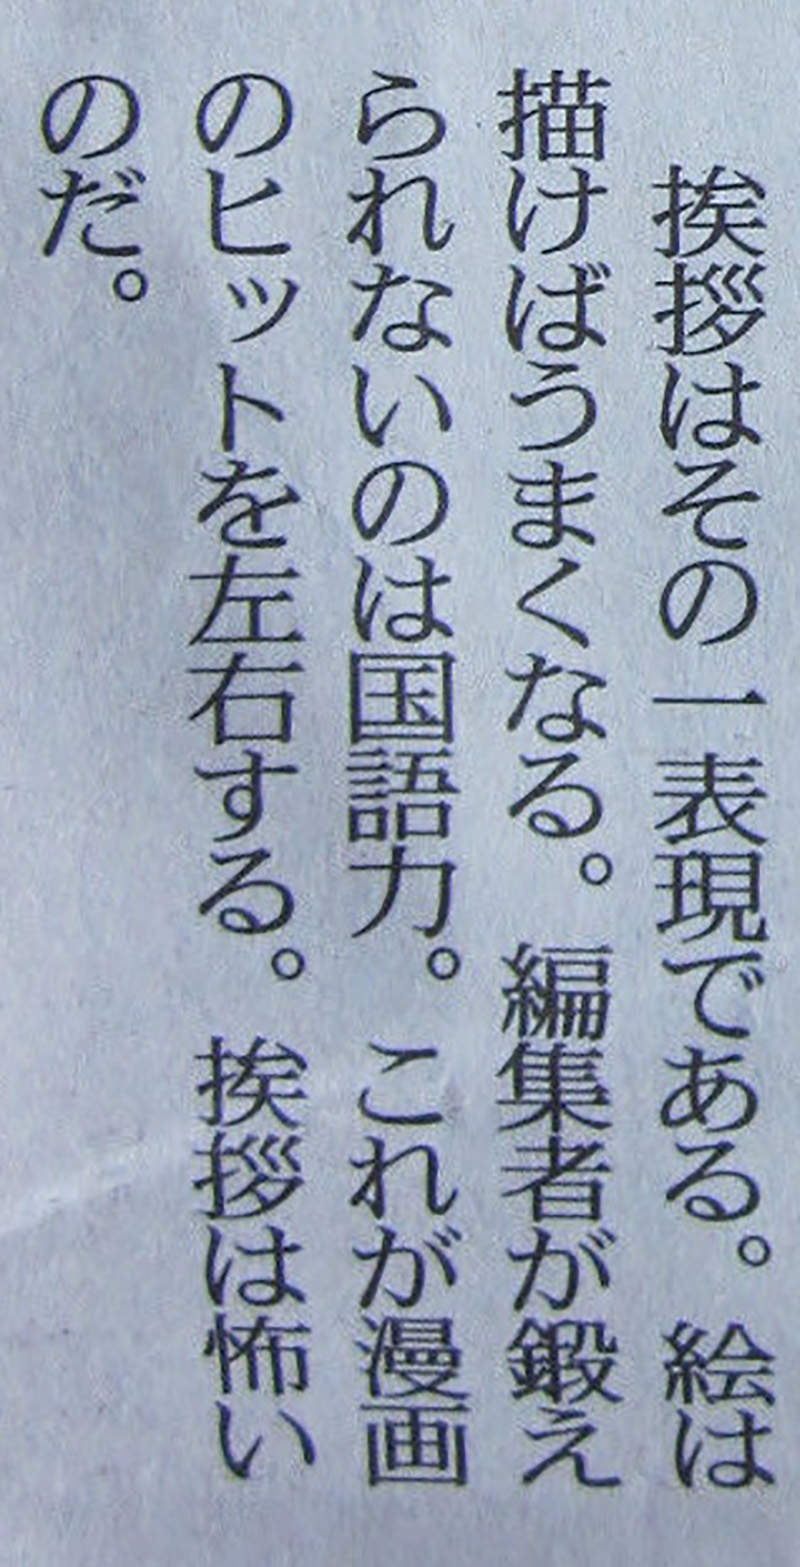 挨拶はその一表現である。絵は
描けばうまくなる。編集者が鍛え
られないのは国語力。これが漫画
のヒットを左右する。挨拶は怖い
のだ。